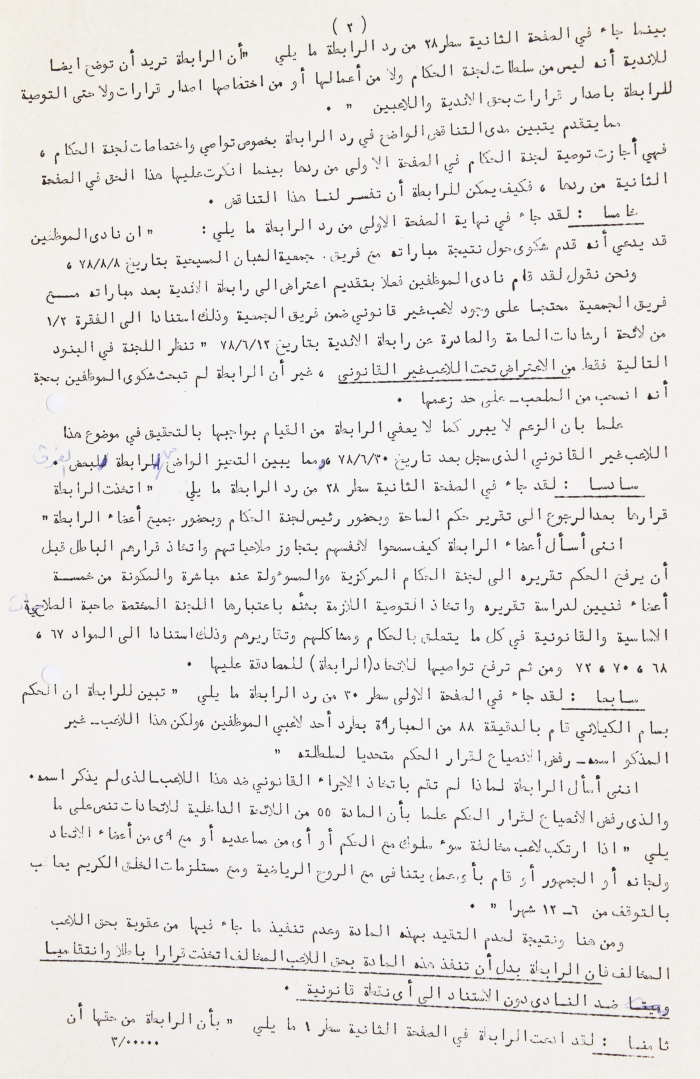 ( ٢ )
بينما جاء في الصفحة الثانية سطر ٢٨ من رد الرابطة ما يلي " أن الرابطة تريد أن توضح ايضا
للاندية أنه ليس من سلطات لجنة الحكام ولا من أعمالها أو من اختصاصها اصدار قرارات ولا حتى التوصية
للرابطة باصدار قرارات بحق الاندية واللاعبين " .
مما يتقدم يتبين مدى التناقض الواضح في رد الرابطة بخصوص تواصي واختصاصات لجنة الحكام ،
فهي أجازت توصية لجنة الحكام في الصفحة الاولى من ردها بينما انكرت عليها هذا الحق في الصفحة
الثانية من ردها ، فكيف يمكن للرابطة أن تفسر لنا هذا التناقض .
خامسا : لقد جاء في نهاية الصفحة الاولى من رد الرابطة ما يلي : " ان نادى الموظفين
قد يدعي أنه قدم شكوى حول نتيجة مباراته مع فريق . جمعية الشبان المسيحية بتاريخ ٧٨/٨/٨ ،
ونحن نقول لقد قام نادى الموظفين فعلا بتقديم اعتراض الى رابطة الاندية بعد مباراته مع
فريق الجمعية محتجا على وجود لاعب غير قانوني ضمن فريق الجمعية وذلك استنادا الى الفقرة ١/٢
من لائحة ارشادات العامة والصادرة عن رابطة الاندية بتاريخ ٧٨/٦/١٢ " تنظر اللجنة في البنود
التالية فقط من الاعتراض تحت اللاعب غير القانوني ، غير أن الرابطة لم تبحث شكوى الموظفين بحجة
أنه انسحب من الملعب ـ على حد زعمها .
علما بان الزعم لا يبرر كما لا يعفي الرابطة من القيام بواجبها بالتحقيق في موضوع هذا
اللاعب غير القانوني الذى سجل بعد تاريخ ٧٨/٦/٣٠ ، ومما يبين التحيز الواضح للرابطة لبعض الفرق .
سادسا : لقد جاء في الصفحة الثانية سطر ٢٨ من رد الرابطة ما يلي " اتخذت الرابطة
قرارها بعد الرجوع الى تقرير حكم الساحة وبحضور رئيس لجنة الحكام وبحضور جميع أعضاء الرابطة "
انني أسأل أعضاء الرابطة كيف سمحوا لانفسهم بتجاوز صلاحياتهم واتخاذ قرارهم الباطل قبل
أن يرفع الحكم تقريره الى لجنة الحكام المركزية ، والمسوءولة عنه مباشرة والمكونة من خمسة
أعضاء فنيين لدراسة تقريره واتخاذ التوصية اللازمة بشأنه باعتبارها اللجنة المختصة صاحبة الصلاحيات
الاساسية والقانونية في كل ما يتعلق بالحكام ومشاكلهم وتقاريرهم وذلك استنادا الى المواد ٦٧ ،
٦٨ ، ٧٠ ، ٧٢ ومن ثم ترفع تواصيها للاتحاد (الرابطة) للمصادقة عليها .
سابعا : لقد جاء في الصفحة الاولى سطر ٣٠ من رد الرابطة ما يلي " تبين للرابطة ان الحكم
بسام الكيلاني قام بالدقيقة ٨٨ من المباراة بطرد أحد لاعبي الموظفين ، ولكن هذا اللاعب ـ غير
المذكو اسمه ـ رفض الانصياع لقرار الحكم متحديا لسلطلته "
انني أسأل الرابطة لماذا لم تقم باتخاذ الاجراء القانوني ضد هذا اللاعب ـ الذى لم يذكر اسمه .
والذى رفض الانصياع لقرار الحكم علما بأن المادة ٥٥ من اللائحة الداخلية للاتحادات تنص على ما
يلي " اذا ارتكب لاعب مخالفة سوء سلوك مع الحكم أو أى من مساعديه أو مع أى من أعضاء الاتحاد
ولجانه أو الجمهور أو قام بأى عمل يتنافى مع الروح الرياضية ومع مستلزمات الخلق الكريم يعاقب
بالتوقف من ٦ ـ ١٢ شهرا " .
ومن هنا ونتيجة لعدم التقيد بهذه المادة وعدم تنفيذ ما جاء فيها من عقوبة بحق اللاعب
المخالف فان الرابطة بدل أن تنفذ هذه المادة بحق اللاعب المخالف اتخذت قرارا باطلا وانتقاميا
ضد النادى دون الاستناد الى أى نقطة قانونية .
ثامنا : لقد ادعت الرابطة في الصفحة الثانية سطر ١ ما يلي " بأن الرابطة من حقها أن
٣/٠٠٠٠٠